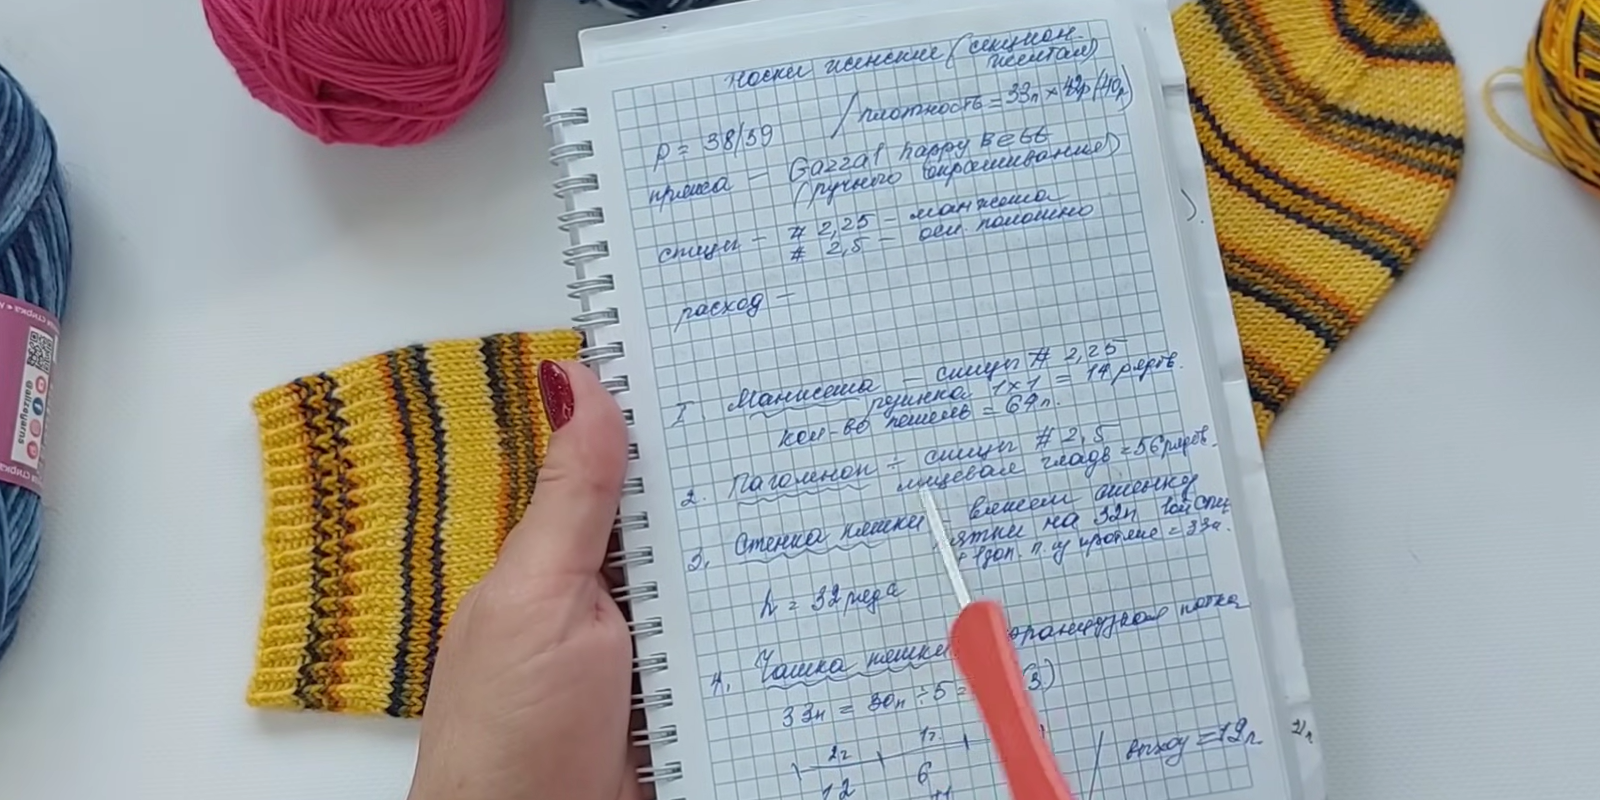 Носки женские (секцион.
меланж)
р = 38/39 / плотность = 33п × 42р (40р)
пряжа – Gazzal happy Feet
(ручного окрашивания)
спицы – # 2,25 – манжета
# 2,5 – осн. полотно
расход –
1. Манжета – спицы # 2,25
резинка 1×1 = 14 рядов.
кол-во петель = 64п.
2. Паголенок – спицы # 2,5
лицевая гладь = 56 рядов.
3. Стенка пятки – вяжем стенку
пятки на 32п
+ 1доп. п. из протяжки = 33п.
h = 32 ряда
4. Чашка пятки французская пятка
33п = 30п ÷ 5 = (3)
2г 1г.
12 6 / выход = 12п.
+1
@alizeyarns